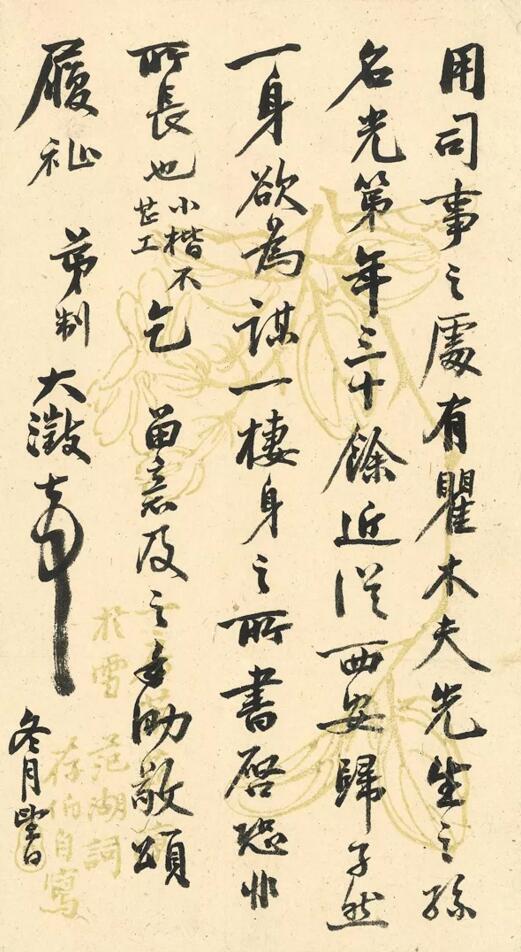 用司事之處有瞿木夫先生之孫
名光第年三十餘近從西安歸孑然
一身欲為謀一棲身之所書啓恐非
所長也
小楷不
甚工
乞 留意及之手泐敬頌
履祉 弟制大澂頓首
冬月望日
於雪
范湖詞
存伯自寫